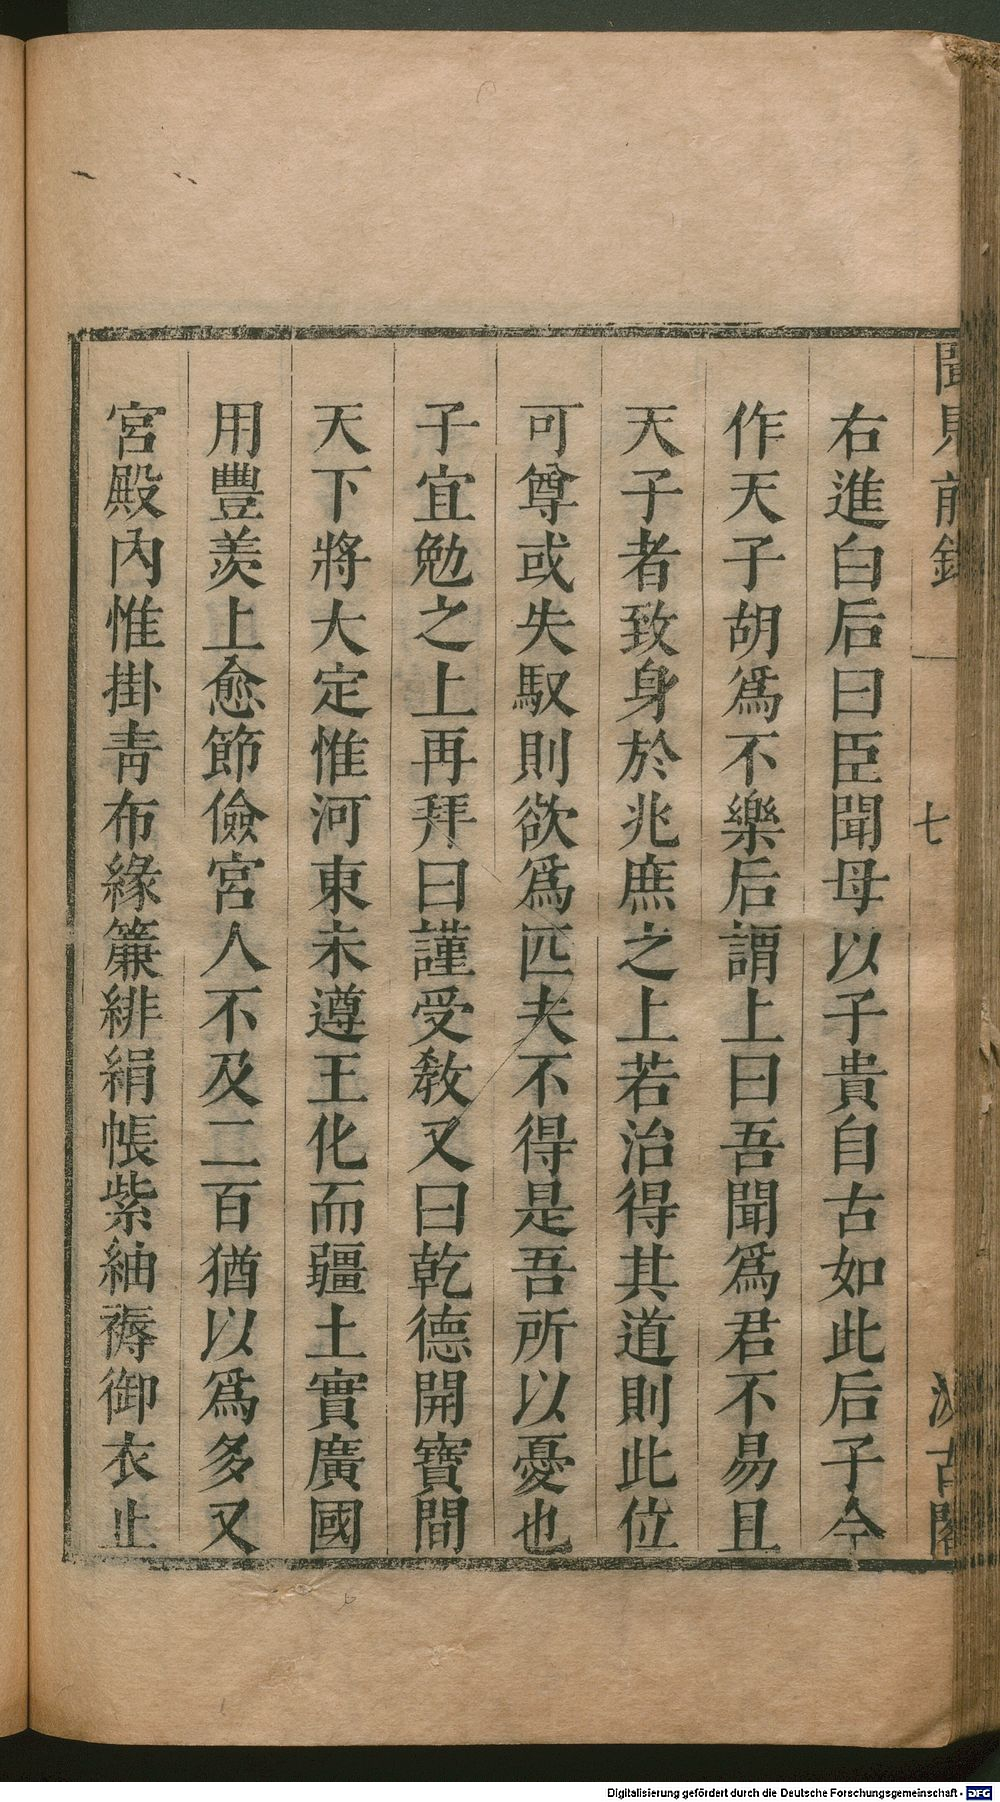 聞見前錄
七
汲古閣
右進白后曰臣聞母以子貴自古如此后子今
作天子胡爲不樂后謂上曰吾聞爲君不易且
天子者致身於兆庶之上若治得其道則此位
可尊或失馭則欲爲匹夫不得是吾所以憂也
子宜勉之上再拜曰謹受敎又曰乾德開寶間
天下將大定惟河東未遵王化而疆土實廣國
用豐羨上愈節儉宮人不及二百猶以爲多又
宮殿內惟掛靑布緣簾緋絹帳紫紬褥御衣止
Digitalisierung gefördert durch die Deutsche Forschungsgemeinschaft - DFG